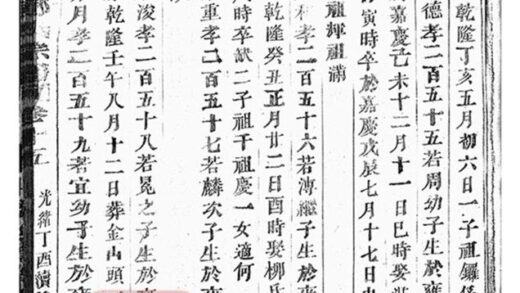 乾隆丁亥五月初六日一子祖
德孝二百五十五若周幼子生於雍
嘉慶己未十二月十一日巳時娶
寅時卒於嘉慶戊辰七月十七日
祖輝祖滿
孝二百五十六若溥繼子生於雍
乾隆癸丑正月廿二日酉時娶柳氏
時卒缺二子祖千祖慶一女適何
重孝二百五十七若麟次子生於雍
浚孝二百五十八若冕之子生於雍
乾隆壬午八月十二日葬金山頭
月孝二百五十九若宜幼子生於雍
光緒丁酉續